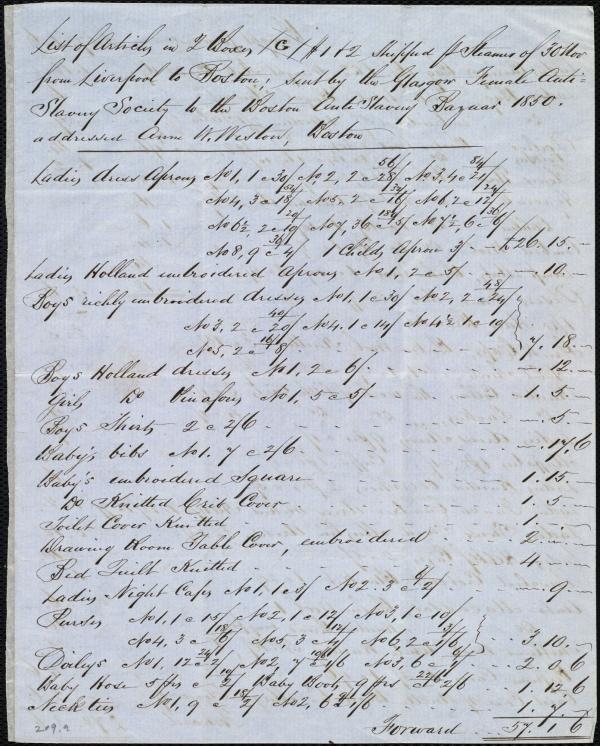 List of Articles in 2 Boxes /G/ # 1 & 2 Shipped pr Steamer of 30 Nov
from Liverpool to Boston; sent by the Glasgow Female Anti=
Slavery Society to the Boston Anti Slavery Bazaar 1850.
addressed Anne W. Weston, Boston
Ladies dress Aprons No 1, 1 @ 30/ No 2, 2 @ 28/ 56/ No 3, 4 @ 21/ 84/
No 4, 3 @ 18/ 54/ No 5, 2 @ 16/ 32/ No 6, 2 @ 12/ 24/
No 6½, 2 @ 10/ 20/ No 7, 36 @ 5/ No 7½, 6 @ 6/ 36/
No 8, 9 @ 4/ 36/ 1 Childs Apron 3/ - £26. 15. -
Ladies Holland embroidered Aprons No 1, 2 @ 5/ - - -. 10. -
Boys richly embroidered dresses No 1, 1 @ 30/ No 2, 2 @ 24/ 48/
No 3, 2 @ 20/ 40/ No 4. 1 @ 14/ No 4½ 1 @ 10/
No 5, 2 @ 8/ 16/ - - - 7. 18. -
Boys Holland dresses No 1, 2 @ 6/ - - - -. 12. -
Girls Do Pinafores No 1, 5 @ 5/ - - - 1. 5. -
Boys Shirts 2 @ 2/6 - - - -. 5 -
Baby's bibs No 1. 7 @ 2/6. - - - -. 17. 6
Baby's embroidered Square - - - 1. 15. -
Do Knitted Crib Cover - - - 1. 5 -
Toilet Cover Knitted - - - 1. - -
Drawing Room Table Cover, embroidered - - 2. - -
Bed Quilt Knitted - - - 4. - -
Ladies Night Caps No 1, 1 @ 3/ No 2. 3 @ 2/ - - -. 9 -
Purses No 1, 1 @ 15/ No 2, 1 @ 12/ No 3, 1 @ 10/
No 4, 3 @ 6/ 18/ No 5, 3 @ 4/ 12/ No 6, 2 @ 1/6 3/ - - 3. 10. -
Doileys No 1, 12 @ 2/ 24/ No 2, 7 @ 1/6 No 3, 6 @ 1/ 6/ - - 2. 0. 6
Baby Hose 5 prs @ 2/ 10/ Baby Boots 9 prs @ 2/6 22/6 - - 1. 12. 6
Neck ties No 1, 9 @ 2/ 18/ No 2, 6 @ 1/6 - - 1. 7. -
Forward - 57. 1 6
209.9